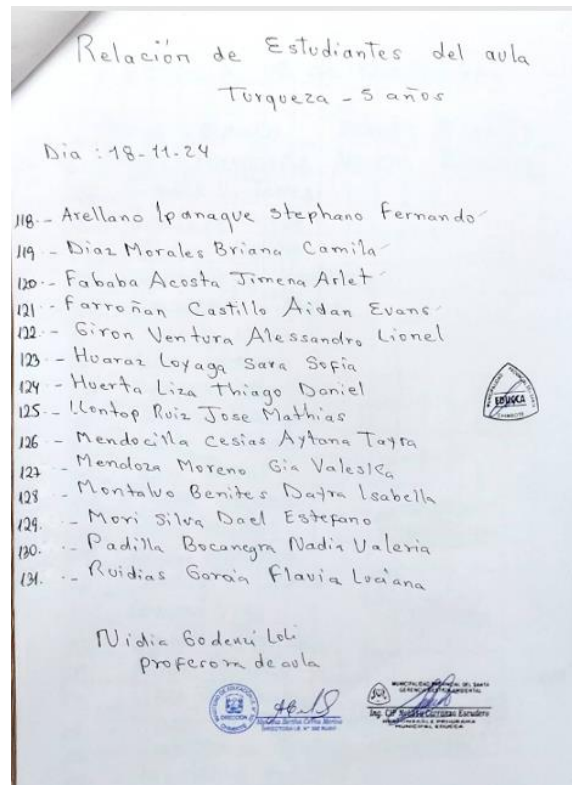 Relación de Estudiantes del aula
Turqueza - 5 años
Dia : 18-11-24
118.- Arellano Ipanaque Stephano Fernando
119 - Diaz Morales Briana Camila
120.- Fababa Acosta Jimena Arlet
121 - Farroñan Castillo Aidan Evans
122.- Giron Ventura Alessandro Lionel
123 - Huaraz Loyaga Sara Sofia
124 - Huerta Liza Thiago Daniel
125.- Llontop Ruiz Jose Mathias
126 - Mendocilla Cesias Aytana Tayra
127 - Mendoza Moreno Gia Valeska
128 - Montalvo Benites Dayra Isabella
129. - Mori Silva Dael Estefano
130. - Padilla Bocanegra Nadia Valeria
131. - Ruidias Garcia Flavia Luciana
EDUCCA
CHIMBOTE
Nidia Godenzi Loli
profesora de aula
DIRECCION
MUNICIPALIDAD PROVINCIAL DEL SANTA
GERENCIA GESTIÓN AMBIENTAL
Ing. CIP Carranza Escudero
RESPONSABLE PROGRAMA
MUNICIPAL EDUCCA